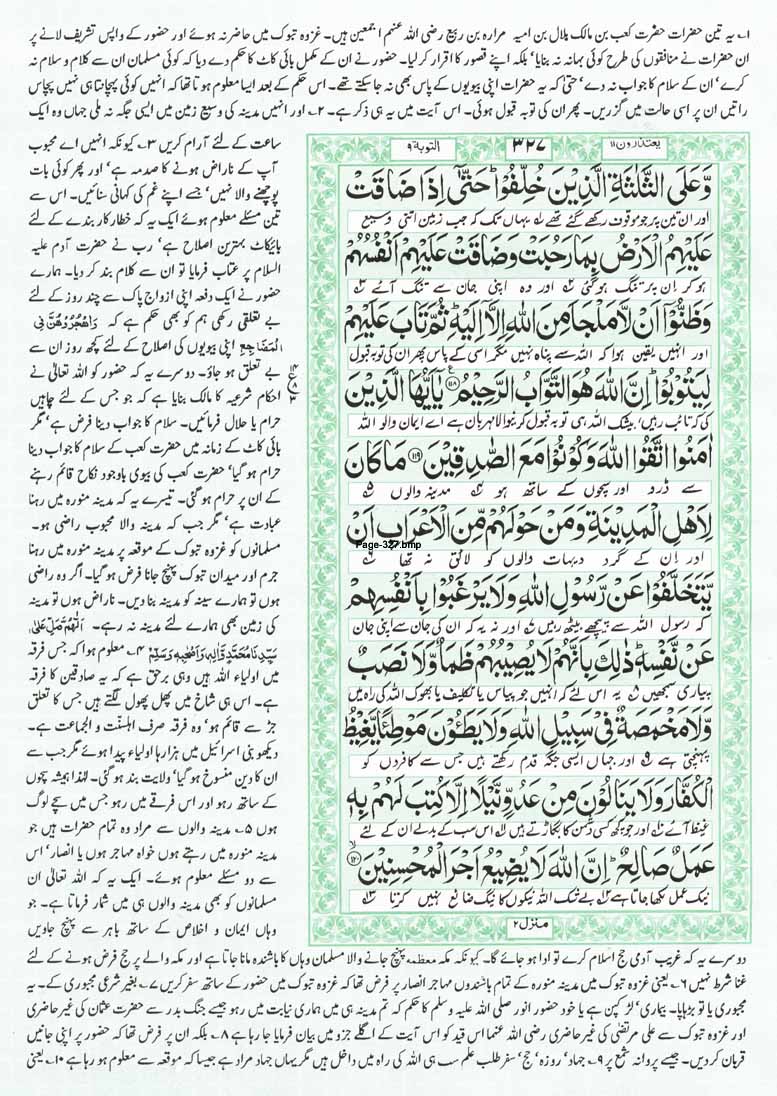 ۱۔ یہ تین حضرات حضرت کعب بن مالک ہلال بن امیہ مرارہ بن ربیع رضی اللہ عنہم اجمعین ہیں۔ غزوہ تبوک میں حاضر نہ ہوئے اور حضور کے واپس تشریف لانے پر
ان حضرات نے منافقوں کی طرح کوئی بہانہ نہ بنایا' بلکہ اپنے قصور کا اقرار کر لیا۔ حضور نے ان کے مکمل بائی کاٹ کا حکم دے دیا کہ کوئی مسلمان ان سے کلام و سلام نہ
کرے' ان کے سلام کا جواب نہ دے' حتیٰ کہ یہ حضرات اپنی بیویوں کے پاس بھی نہ جا سکتے تھے۔ اس حکم کے بعد ایسا معلوم ہوتا تھا کہ انہیں کوئی پہچانتا ہی نہیں پچاس
راتیں ان پر اسی حالت میں گزریں۔ پھر ان کی توبہ قبول ہوئی۔ اس آیت میں یہ ہی ذکر ہے۔ ۲۔ اور انہیں مدینہ کی وسیع زمین میں ایسی جگہ نہ ملی جہاں وہ ایک
یعتذرون ۱۱ ۳۲۷ التوبة ۹
وَّعَلَى الثَّلٰثَةِ الَّذِيْنَ خُلِّفُوْا حَتّٰٓى اِذَا ضَاقَتْ
اور ان تین پر جو موقوف رکھے گئے تھے یہاں تک کہ جب زمین اتنی وسیع
عَلَيْهِمُ الْاَرْضُ بِمَا رَحُبَتْ وَضَاقَتْ عَلَيْهِمْ اَنْفُسُهُمْ
ہو کر ان پر تنگ ہو گئی اور وہ اپنی جان سے تنگ آئے
وَظَنُّوْٓا اَنْ لَّا مَلْجَاَ مِنَ اللّٰهِ اِلَّآ اِلَيْهِ ثُمَّ تَابَ عَلَيْهِمْ
اور انہیں یقین ہوا کہ اللہ سے پناہ نہیں مگر اسی کے پاس پھر ان کی توبہ قبول
لِيَتُوْبُوْا اِنَّ اللّٰهَ هُوَ التَّوَّابُ الرَّحِيْمُ ﴿۱۱۸﴾ يٰٓاَيُّهَا الَّذِيْنَ
کی کہ تائب رہیں' بیشک اللہ ہی توبہ قبول کرنیوالا مہربان ہے اے ایمان والو اللہ
اٰمَنُوا اتَّقُوا اللّٰهَ وَكُوْنُوْا مَعَ الصّٰدِقِيْنَ ﴿۱۱۹﴾ مَا كَانَ
سے ڈرو اور سچوں کے ساتھ ہو مدینہ والوں
لِاَهْلِ الْمَدِيْنَةِ وَمَنْ حَوْلَهُمْ مِّنَ الْاَعْرَابِ اَنْ
Page-327.bmp
اور ان کے گرد دیہات والوں کو لائق نہ تھا
يَّتَخَلَّفُوْا عَنْ رَّسُوْلِ اللّٰهِ وَلَا يَرْغَبُوْا بِاَنْفُسِهِمْ
کہ رسول اللہ سے پیچھے بیٹھ رہیں اور نہ یہ کہ ان کی جان سے اپنی جان
عَنْ نَّفْسِهٖ ذٰلِكَ بِاَنَّهُمْ لَا يُصِيْبُهُمْ ظَمَاٌ وَّلَا نَصَبٌ
پیاری سمجھیں یہ اس لئے کہ انہیں جو پیاس یا تکلیف یا بھوک اللہ کی راہ میں
وَّلَا مَخْمَصَةٌ فِيْ سَبِيْلِ اللّٰهِ وَلَا يَطَـُٔوْنَ مَوْطِئًا يَّغِيْظُ
پہنچتی ہے اور جہاں ایسی جگہ قدم رکھتے ہیں جس سے کافروں کو
الْكُفَّارَ وَلَا يَنَالُوْنَ مِنْ عَدُوٍّ نَّيْلًا اِلَّا كُتِبَ لَهُمْ بِهٖ
غیظ آئے اور جو کچھ کسی دشمن کا بگاڑتے ہیں اس سب کے بدلے ان کے لئے
عَمَلٌ صَالِحٌ اِنَّ اللّٰهَ لَا يُضِيْعُ اَجْرَ الْمُحْسِنِيْنَ ﴿۱۲۰﴾
نیک عمل لکھا جاتا ہے بے شک اللہ نیکوں کا نیگ ضائع نہیں کرتا
منزل ۲
ساعت کے لئے آرام کریں ۳۔ کیونکہ انہیں اے محبوب
آپ کے ناراض ہونے کا صدمہ ہے' اور پھر کوئی بات
پوچھنے والا نہیں' جسے اپنے غم کی کہانی سنائیں۔ اس سے
تین مسئلے معلوم ہوئے ایک یہ کہ خطا کار بندے کے لئے
بائیکاٹ بہترین اصلاح ہے' رب نے حضرت آدم علیہ
السلام پر عتاب فرمایا تو ان سے کلام بند کر دیا۔ ہمارے
حضور نے ایک دفعہ اپنی ازواج پاک سے چند روز کے لئے
بے تعلقی رکھی ہم کو بھی حکم ہے کہ وَاهْجُرُوْهُنَّ فِی
الْمَضَاجِعِ اپنی بیویوں کی اصلاح کے لئے کچھ روز ان سے
بے تعلق ہو جاؤ۔ دوسرے یہ کہ حضور کو اللہ تعالیٰ نے
احکام شرعیہ کا مالک بنایا ہے کہ جو جس کے لئے چاہیں
حرام یا حلال فرمائیں۔ سلام کا جواب دینا فرض ہے' مگر
بائی کاٹ کے زمانہ میں حضرت کعب کے سلام کا جواب دینا
حرام ہو گیا' حضرت کعب کی بیوی باوجود نکاح قائم رہنے
کے ان پر حرام ہو گئی۔ تیسرے یہ کہ مدینہ منورہ میں رہنا
عبادت ہے' مگر جب کہ مدینہ والا محبوب راضی ہو۔
مسلمانوں کو غزوہ تبوک کے موقعہ پر مدینہ منورہ میں رہنا
جرم اور میدان تبوک پہنچ جانا فرض ہو گیا۔ اگر وہ راضی
ہوں تو ہمارے سینہ کو مدینہ بنا دیں۔ ناراض ہوں تو مدینہ
کی زمین بھی ہمارے لئے مدینہ نہ رہے۔ اَللّٰهُمَّ صَلِّ عَلٰی
سَيِّدِنَا مُحَمَّدٍ وَّاٰلِهٖ وَاَصْحٰبِهٖ وَسَلِّمْ ۴۔ معلوم ہوا کہ جس فرقہ
میں اولیاء اللہ ہیں وہی برحق ہے کہ یہ صادقین کا فرقہ
ہے۔ اس ہی شاخ میں پھل پھول لگتے ہیں جس کا تعلق
جڑ سے قائم ہو' وہ فرقہ صرف اہلسنت و الجماعت ہے۔
دیکھو بنی اسرائیل میں ہزارہا اولیاء پیدا ہوئے مگر جب سے
ان کا دین منسوخ ہو گیا' ولایت بند ہو گئی۔ لہٰذا ہمیشہ سچوں
کے ساتھ رہو اور اس فرقے میں رہو جس میں سچے لوگ
ہوں ۵۔ مدینہ والوں سے مراد وہ تمام حضرات ہیں جو
مدینہ منورہ میں رہتے ہوں خواہ مہاجر ہوں یا انصار' اس
سے دو مسئلے معلوم ہوئے۔ ایک یہ کہ اللہ تعالیٰ ان
مسلمانوں کو بھی مدینہ والوں ہی میں شمار فرماتا ہے۔ جو
وہاں ایمان و اخلاص کے ساتھ باہر سے پہنچ جاویں
دوسرے یہ کہ غریب آدمی حج اسلام کرے تو ادا ہو جائے گا۔ کیونکہ مکہ معظمہ پہنچ جانے والا مسلمان وہاں کا باشندہ مانا جاتا ہے اور مکہ والے پر حج فرض ہونے کے لئے
غنا شرط نہیں ۶۔ یعنی غزوہ تبوک میں مدینہ منورہ کے تمام باشندوں مہاجر انصار پر فرض تھا کہ غزوہ تبوک میں حضور کے ساتھ سفر کریں ۷۔ بغیر شرعی مجبوری کے۔ یہ
مجبوری یا تو بڑہاپا۔ بیماری' لڑکپن ہے یا خود حضور انور صلی اللہ علیہ وسلم کا حکم کہ تم مدینہ ہی میں ہماری نیابت میں رہو جیسے جنگ بدر سے حضرت عثمان کی غیر حاضری
اور غزوہ تبوک سے علی مرتضٰی کی غیر حاضری رضی اللہ عنہما اس قید کو اس آیت کے اگلے جزو میں بیان فرمایا جا رہا ہے ۸۔ بلکہ ان پر فرض تھا کہ حضور پر اپنی جانیں
قربان کر دیں۔ جیسے پروانہ شمع پر ۹۔ جہاد' روزہ' حج' سفر طلب علم سب ہی اللہ کی راہ میں داخل ہیں مگر یہاں جہاد مراد ہے جیسا کہ موقعہ سے معلوم ہو رہا ہے ۱۰۔ یعنی